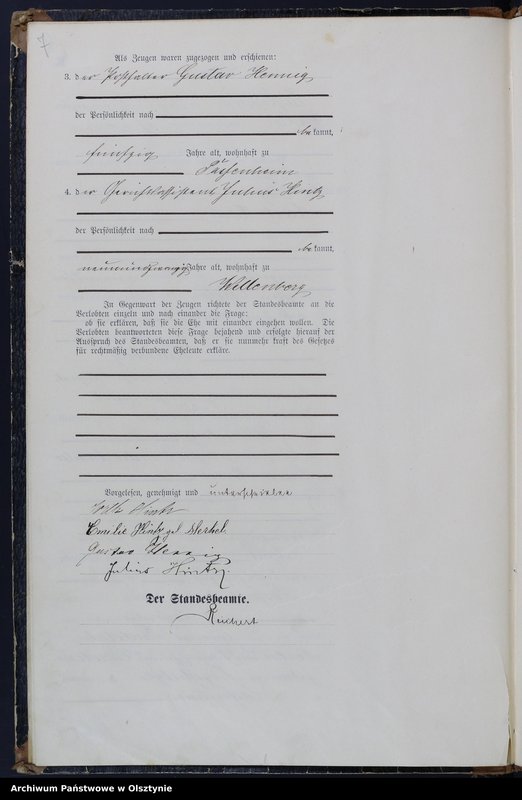 7
Als Zeugen waren zugezogen und erschienen:
3. der Posthalter Gustav Hennig
der Persönlichkeit nach
bekannt,
fünfzig Jahre alt, wohnhaft zu
Passenheim
4. der Gerichtsassistent Julius Hintz
der Persönlichkeit nach
bekannt,
neunundzwanzig Jahre alt, wohnhaft zu
Willenberg
In Gegenwart der Zeugen richtete der Standesbeamte an die
Verlobten einzeln und nach einander die Frage:
ob sie erklären, daß sie die Ehe mit einander eingehen wollen. Die
Verlobten beantworteten diese Frage bejahend und erfolgte hierauf der
Ausspruch des Standesbeamten, daß er sie nunmehr kraft des Gesetzes
für rechtmäßig verbundene Eheleute erkläre.
Vorgelesen, genehmigt und unterschrieben
Hintz
Emilie Hintz geb. Merkel.
Gustav Hennig
Julius Hintz.
Der Standesbeamte.
Reichert
Archiwum Państwowe w Olsztynie